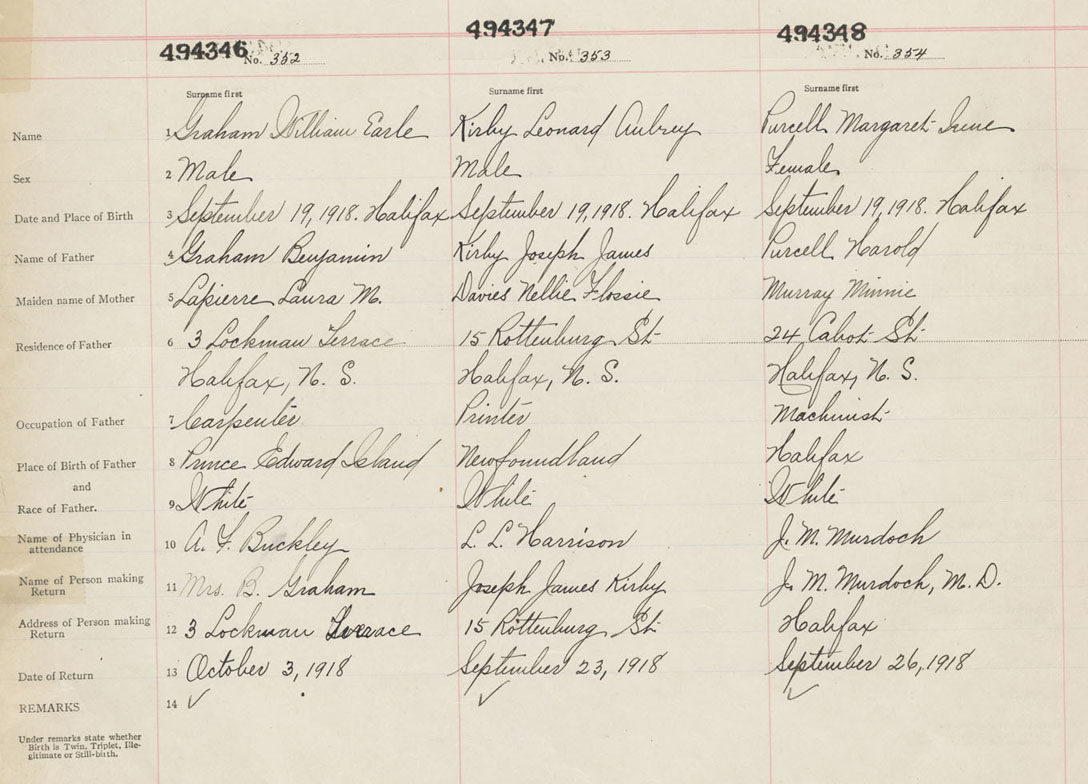 494346 No. 352
494347 No. 353
494348 No. 354
Surname first Surname first Surname first
Name 1 Graham William Earle Kirby Leonard Aubrey Purcell Margaret Irene
Sex 2 Male Male Female
Date and Place of Birth 3 September 19, 1918. Halifax September 19, 1918. Halifax September 19, 1918. Halifax
Name of Father 4 Graham Benjamin Kirby Joseph James Purcell Harold
Maiden name of Mother 5 Lapierre Laura M. Davies Nellie Flossie Murray Minnie
Residence of Father 6 3 Lockman Terrace 15 Rottenburg St 24 Cabot St
Halifax, N. S. Halifax, N. S. Halifax, N. S.
Occupation of Father 7 Carpenter Printer Machinist
Place of Birth of Father 8 Prince Edward Island Newfoundland Halifax
and
Race of Father. 9 White White White
Name of Physician in
attendance 10 A. F. Buckley L. L. Harrison J. M. Murdoch
Name of Person making
Return 11 Mrs. B. Graham Joseph James Kirby J. M. Murdoch, M. D.
Address of Person making
Return 12 3 Lockman Terrace 15 Rottenburg St Halifax
Date of Return 13 October 3, 1918 September 23, 1918 September 26, 1918
REMARKS 14 ✓ ✓ ✓
Under remarks state whether
Birth is Twin, Triplet, Ille-
gitimate or Still-birth.